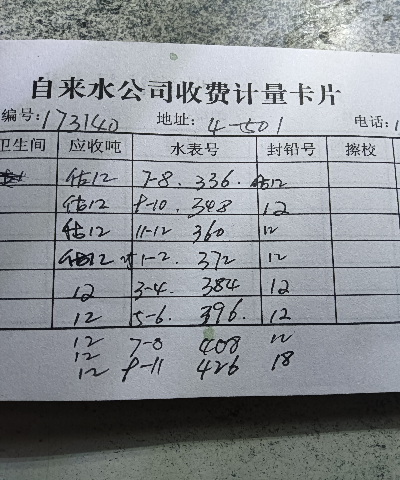 自来水公司收费计量卡片
编号:173140 地址:4-501 电话:1
卫生间 应收吨 水表号 封铅号 擦校
估12 7-8. 336. 估12
估12 9-10. 348 12
估12 11-12 360 12
估12 1-2. 372 12
12 3-4. 384 12
12 5-6. 396. 12
12 7-8 408 12
12
12 9-11 426 18